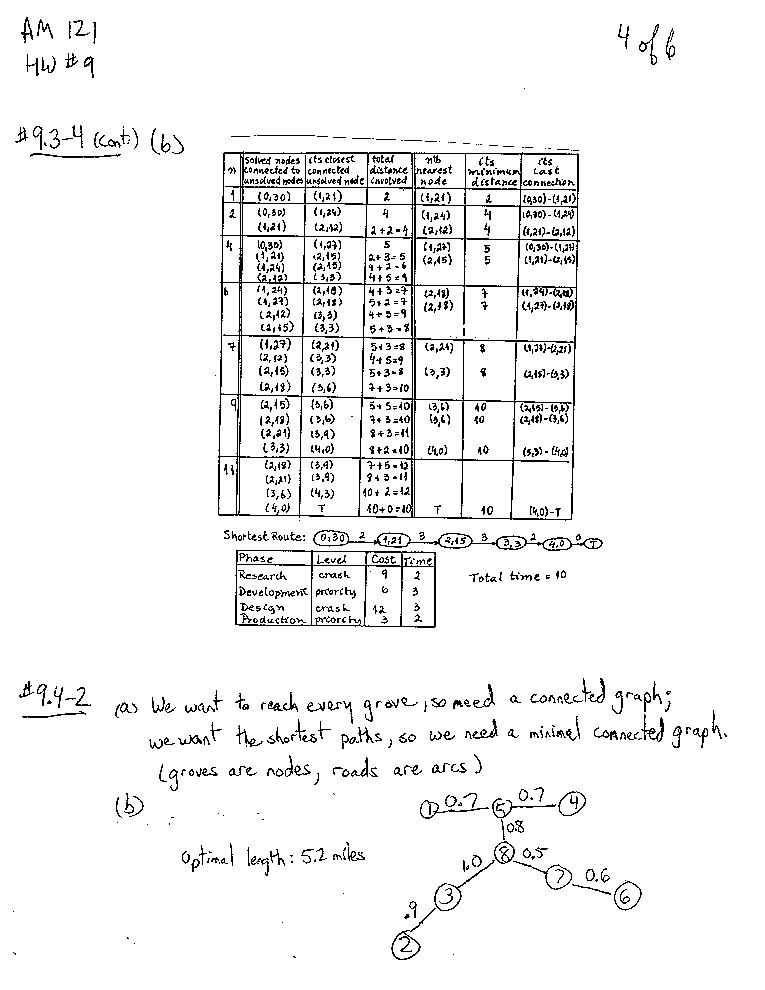 AM 121
HW #9
4 of 6
#9.3-4 (cont.) (b)
n | solved nodes connected to unsolved nodes | its closest connected unsolved node | total distance involved | nth nearest node | its minimum distance | its last connection
1 | (0,30) | (1,21) | 2 | (1,21) | 2 | (0,30)-(1,21)
2 | (0,30) | (1,24) | 4 | (1,24) | 4 | (0,30)-(1,24)
(1,21) | (2,12) | 2+2=4 | (2,12) | 4 | (1,21)-(2,12)
4 | (0,30) | (1,27) | 5 | (1,27) | 5 | (0,30)-(1,27)
(1,21) | (2,15) | 2+3=5 | (2,15) | 5 | (1,21)-(2,15)
(1,24) | (2,15) | 4+2=6
(2,12) | (3,3) | 4+5=9
6 | (1,24) | (2,18) | 4+3=7 | (2,18) | 7 | (1,24)-(2,18)
(1,27) | (2,18) | 5+2=7 | (2,18) | 7 | (1,27)-(2,18)
(2,12) | (3,3) | 4+5=9
(2,15) | (3,3) | 5+3=8
7 | (1,27) | (2,21) | 5+3=8 | (2,21) | 8 | (1,27)-(2,21)
(2,12) | (3,3) | 4+5=9
(2,15) | (3,3) | 5+3=8 | (3,3) | 8 | (2,15)-(3,3)
(2,18) | (3,6) | 7+3=10
9 | (2,15) | (3,6) | 5+5=10 | (3,6) | 10 | (2,15)-(3,6)
(2,18) | (3,6) | 7+3=10 | (3,6) | 10 | (2,18)-(3,6)
(2,21) | (3,9) | 8+3=11
(3,3) | (4,0) | 8+2=10 | (4,0) | 10 | (3,3)-(4,0)
11 | (2,18) | (3,9) | 7+5=12
(2,21) | (3,9) | 8+3=11
(3,6) | (4,3) | 10+2=12
(4,0) | T | 10+0=10 | T | 10 | (4,0)-T
Shortest Route: (0,30) 2 (1,21) 3 (2,15) 3 (3,3) 2 (4,0) 0 T
Phase | Level | Cost | Time
Research | crash | 9 | 2
Development | priority | 6 | 3
Design | crash | 12 | 3
Production | priority | 3 | 2
Total time = 10
#9.4-2
(a) We want to reach every grove, so need a connected graph;
we want the shortest paths, so we need a minimal connected graph.
(groves are nodes, roads are arcs)
(b)
1 0.7 5 0.7 4
0.8
Optimal length: 5.2 miles
1.0 8 0.5
3 7 0.6 6
.9
2